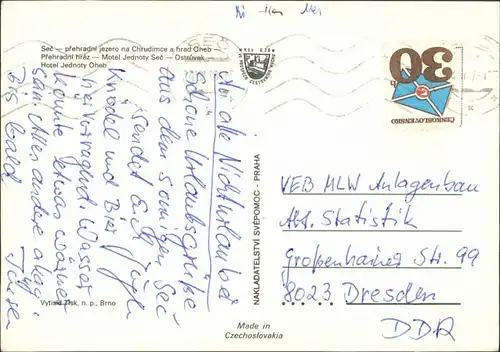 Seč — přehradní jezero na Chrudimce a hrad Oheb
Přehradní hráz — Motel Jednoty Seč — Ostrůvek
Hotel Jednoty Oheb
An alle Nichturlauber
schöne Urlaubsgrüße
aus dem sonnigen Seč
sendet Euch
Knödel und Bier
hervorragend, Wasser
könnte etwas wärmer
sein. Alles andere okay
Bis bald
Vytiskl Tisk, n. p., Brno
NAKLADATELSTVÍ SVÉPOMOC - PRAHA
Made in
Czechoslovakia
30
ČESKOSLOVENSKO
VEB MLW Anlagenbau
Abt. Statistik
Großenhainer Str. 99
8023 Dresden
DDR